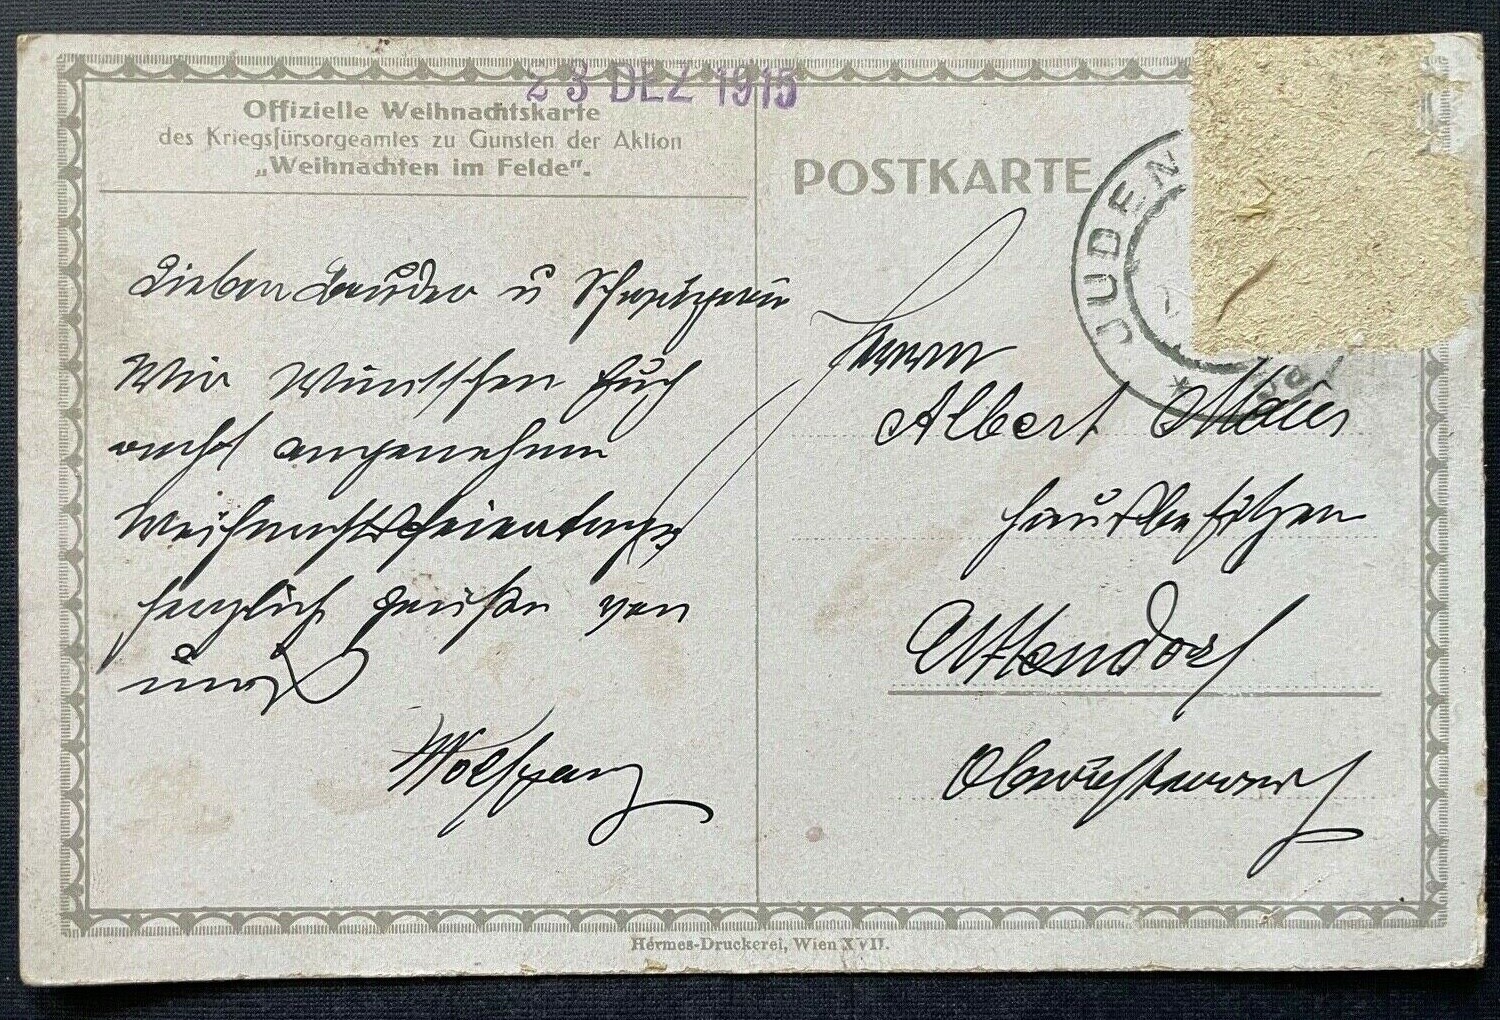 23 DEZ 1915
Offizielle Weihnachtskarte
des Kriegsfürsorgeamtes zu Gunsten der Aktion
„Weihnachten im Felde".
POSTKARTE
JUDEN
Lieben Bruder u Schwägerin
Wir wünschen Euch
recht angenehme
Weihnachtsfeiertage,
herzlich Grüße von
uns
Wolfgang
Herrn
Albert
Hausbesitzer
Attendorf
Hermes-Druckerei, Wien XVII.